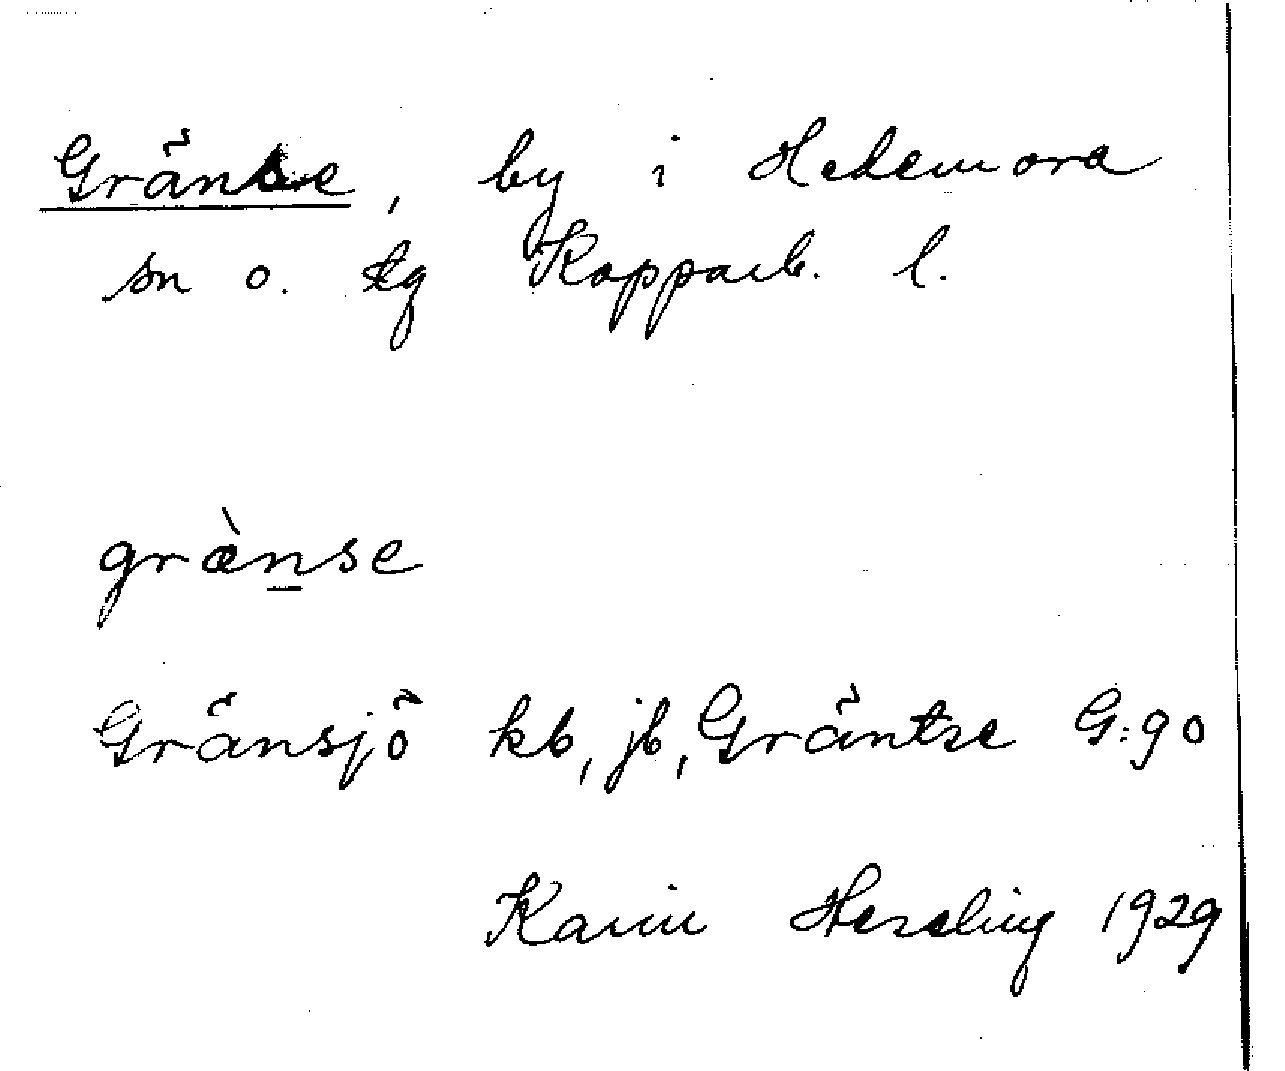 Gränse, by i Hedemora
sn o. tg Kopparb. l.
græ̀nse
Gränsjö kb, jb, Gräntse G:90
Karin Hesseling 1929